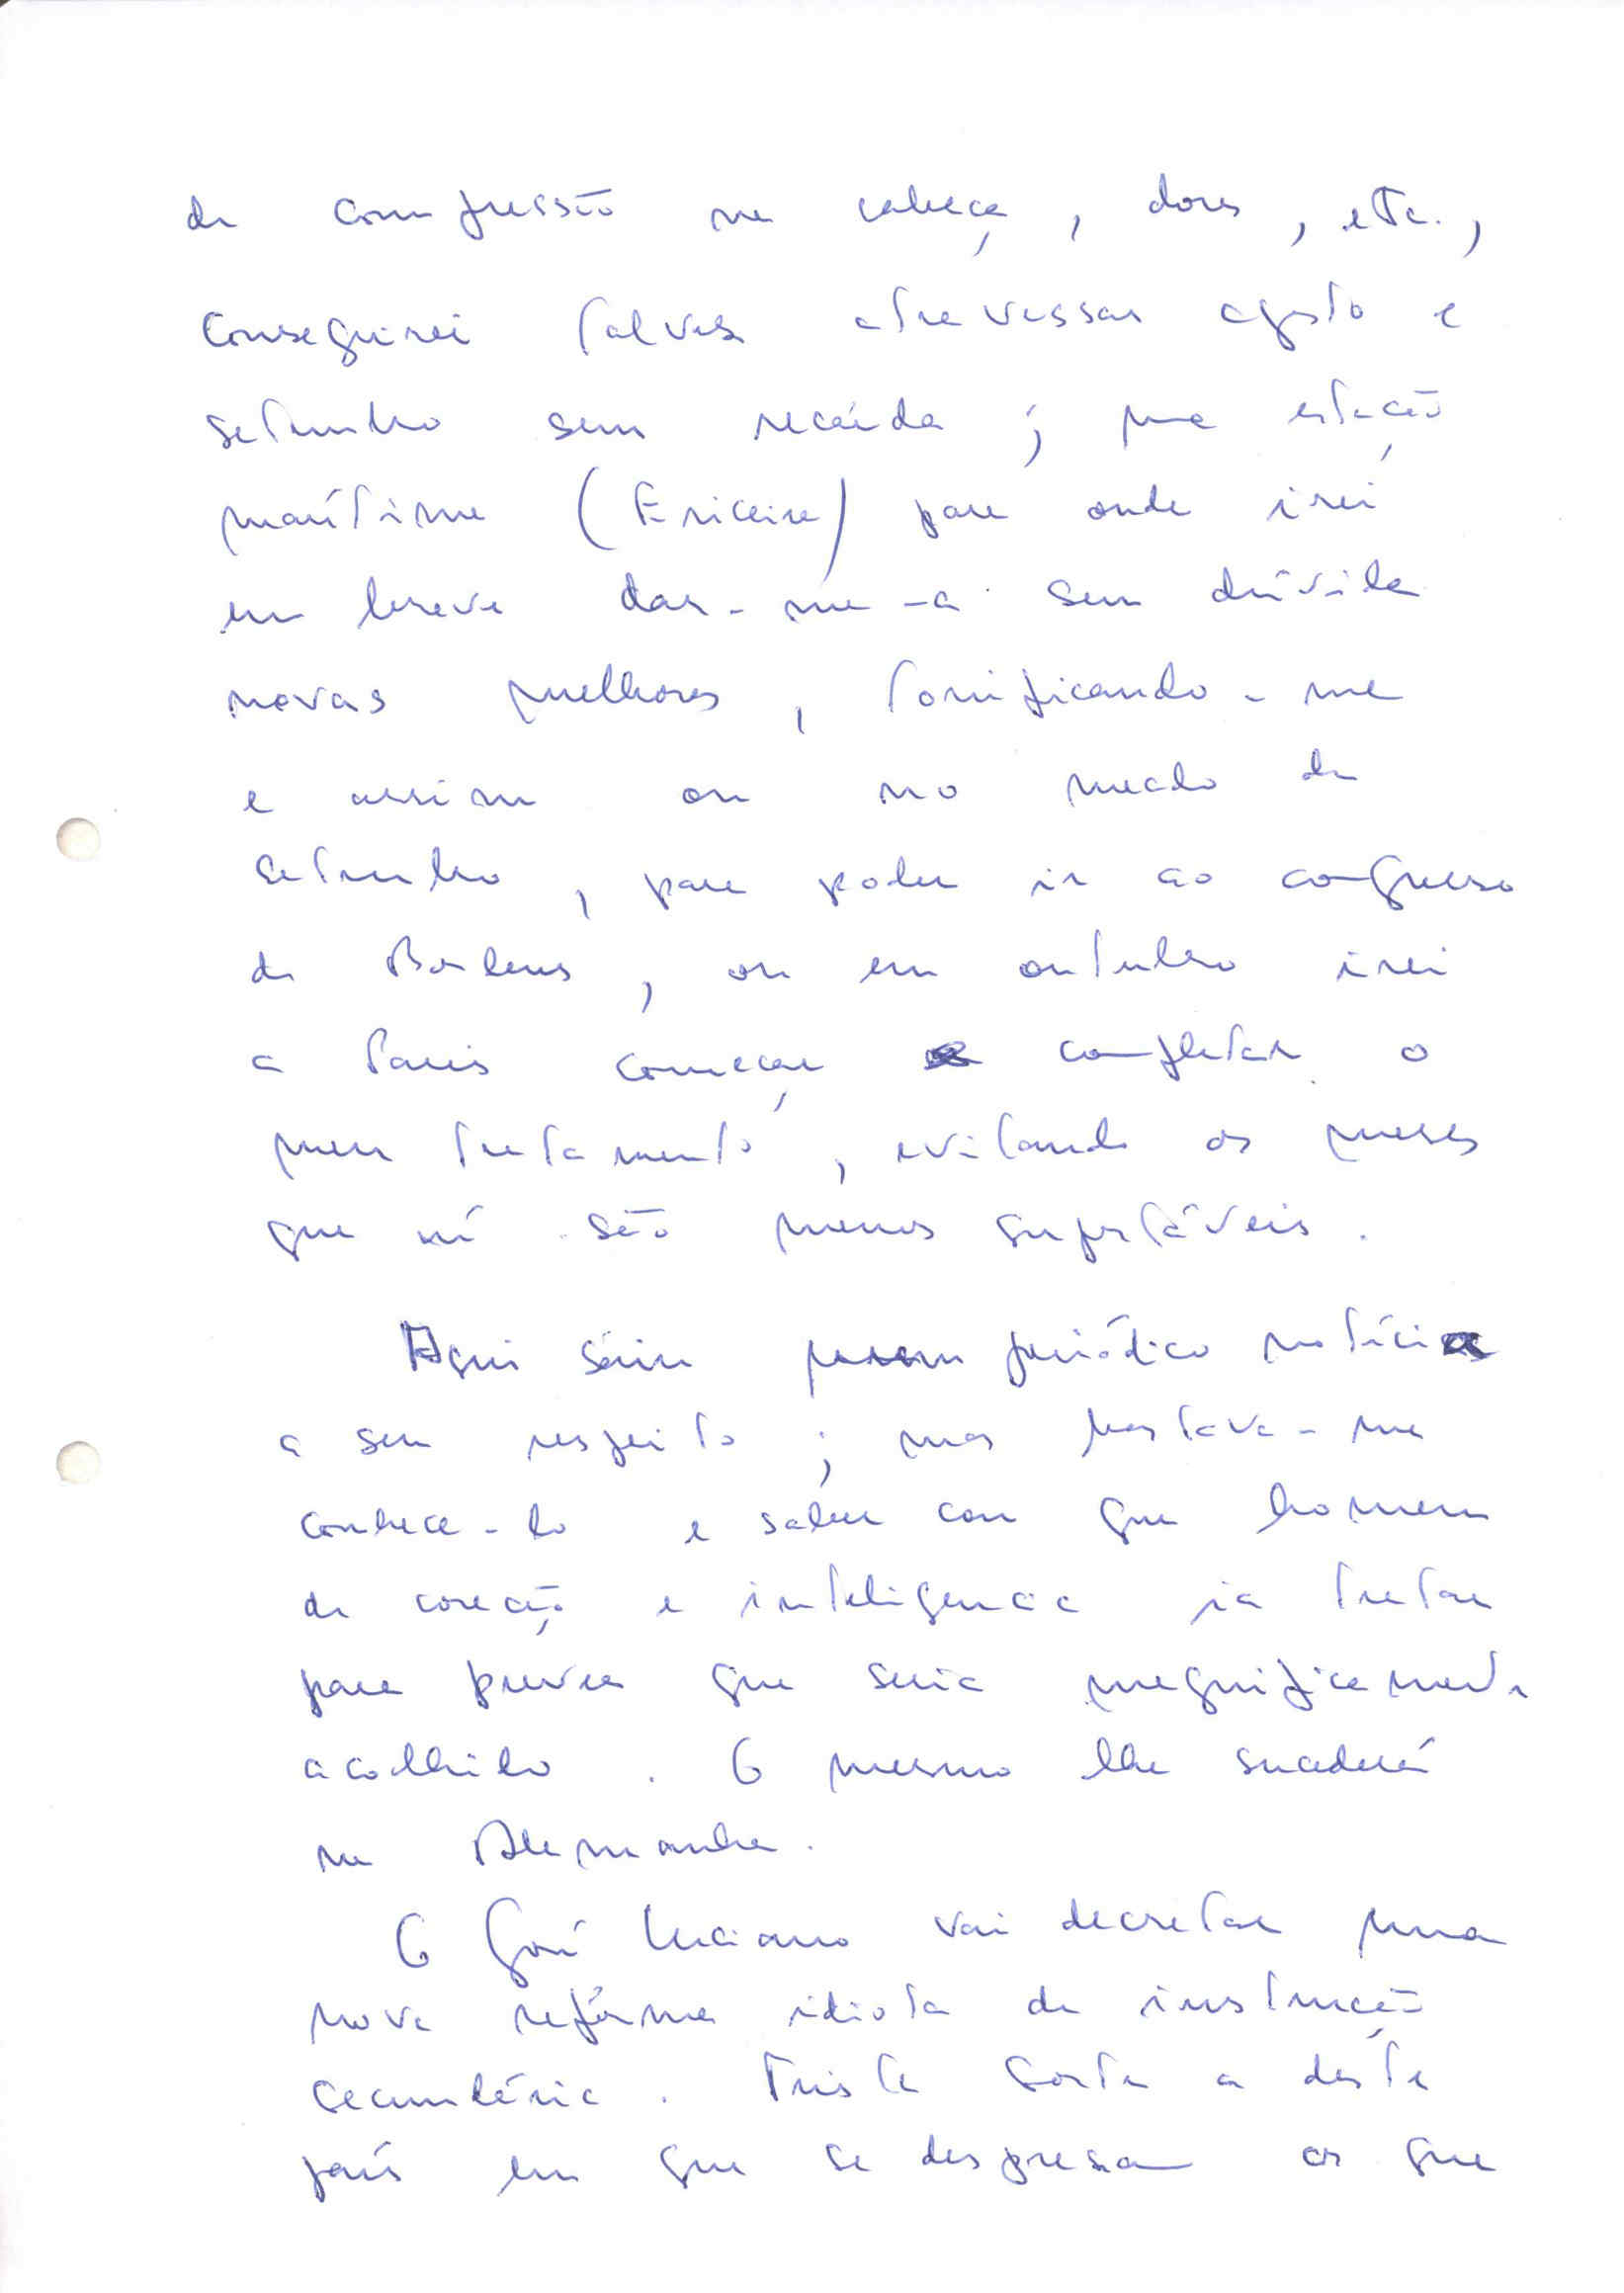 de compressão na cabeça, dores, etc.,
conseguirei talvez atravessar agosto e
setembro sem recaída; uma estação
marítima (Ericeira) para onde irei
em breve dar-me-a sem dúvida
novas melhoras, tonificando-me
e assim ou no meado de
setembro, para poder ir ao congresso
de Bordeus, ou em outubro irei
a Paris começar completar o
meu tratamento, evitando os meses
que aí são menos suportáveis.
Aqui saiu num periódico notícia
a seu respeito; mas bastava-me
conhece-lo e saber com que homem
de coração e inteligencia ia tratar
para prever que seria magnificamente
acolhido. O mesmo lhe sucederá
na Alemanha.
O José Luciano vai decretar uma
nova reforma idiota de instrução
secundária. Triste sorte a deste
país em que se despresam os que